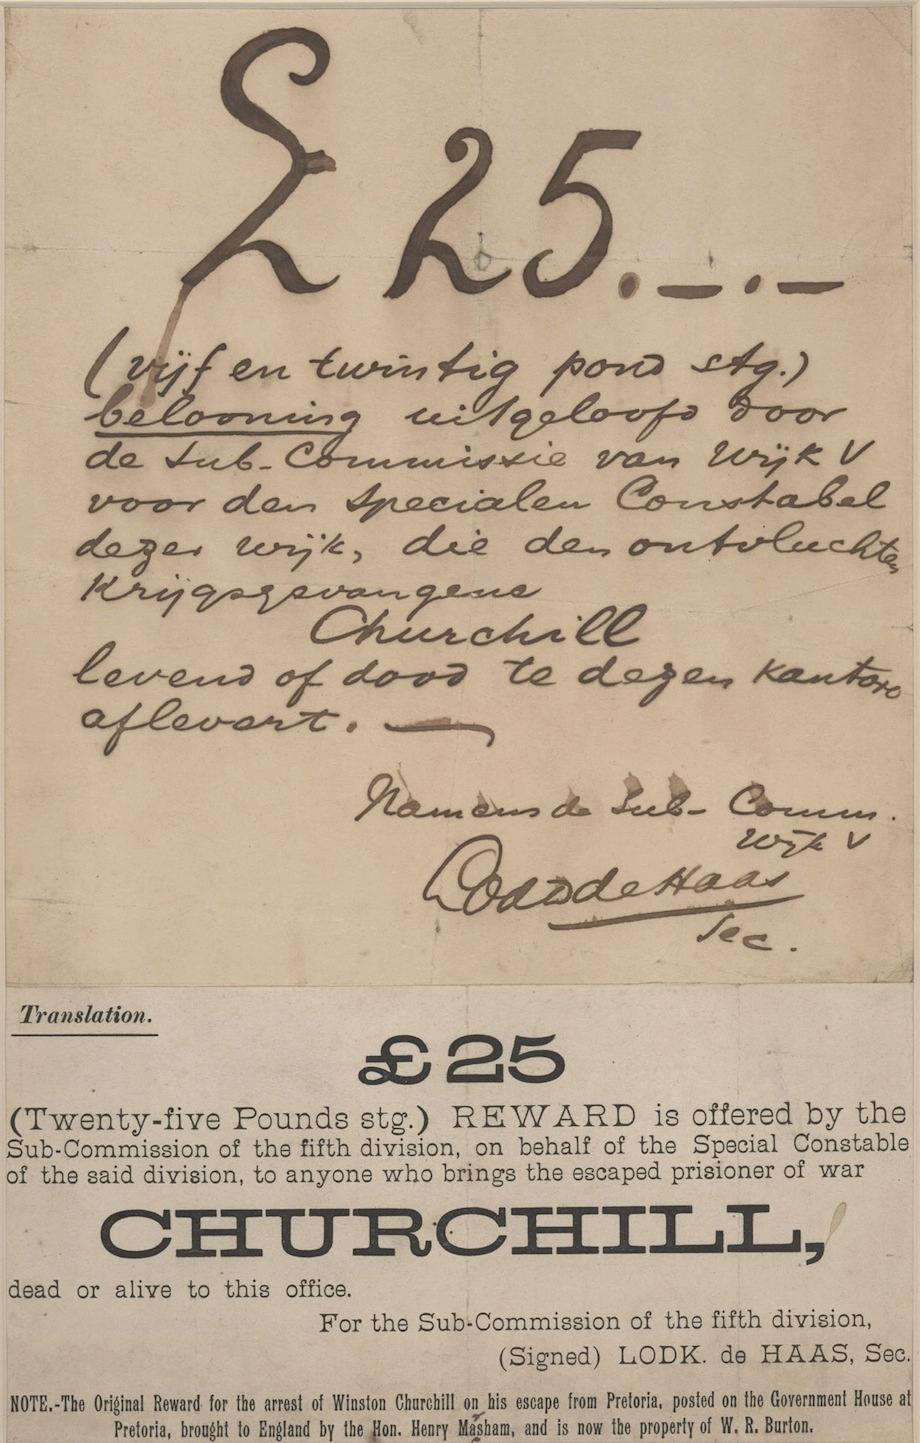 £ 25.—.—
(vijf en twintig pond stg.)
belooning uitgeloofd door
de Sub-Commissie van Wijk V
voor den specialen Constabel
dezer wijk, die den ontvluchten
Krijgsgevangene
Churchill
levend of dood te dezen kantore
aflevert. —
Namens de Sub-Comm.
Wijk V
Lodk de Haas
Sec.
Translation.
£25
(Twenty-five Pounds stg.) REWARD is offered by the
Sub-Commission of the fifth division, on behalf of the Special Constable
of the said division, to anyone who brings the escaped prisioner of war
CHURCHILL,
dead or alive to this office.
For the Sub-Commission of the fifth division,
(Signed) LODK. de HAAS, Sec.
NOTE.-The Original Reward for the arrest of Winston Churchill on his escape from Pretoria, posted on the Government House at
Pretoria, brought to England by the Hon. Henry Masham, and is now the property of W. R. Burton.